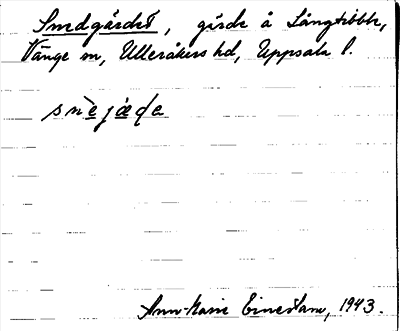 Smedgärdet, gärde å Långtibble,
Vänge sn, Ulleråkers hd, Uppsala l.
snèjǻḍe
Ann-Marie Einerstam, 1943.